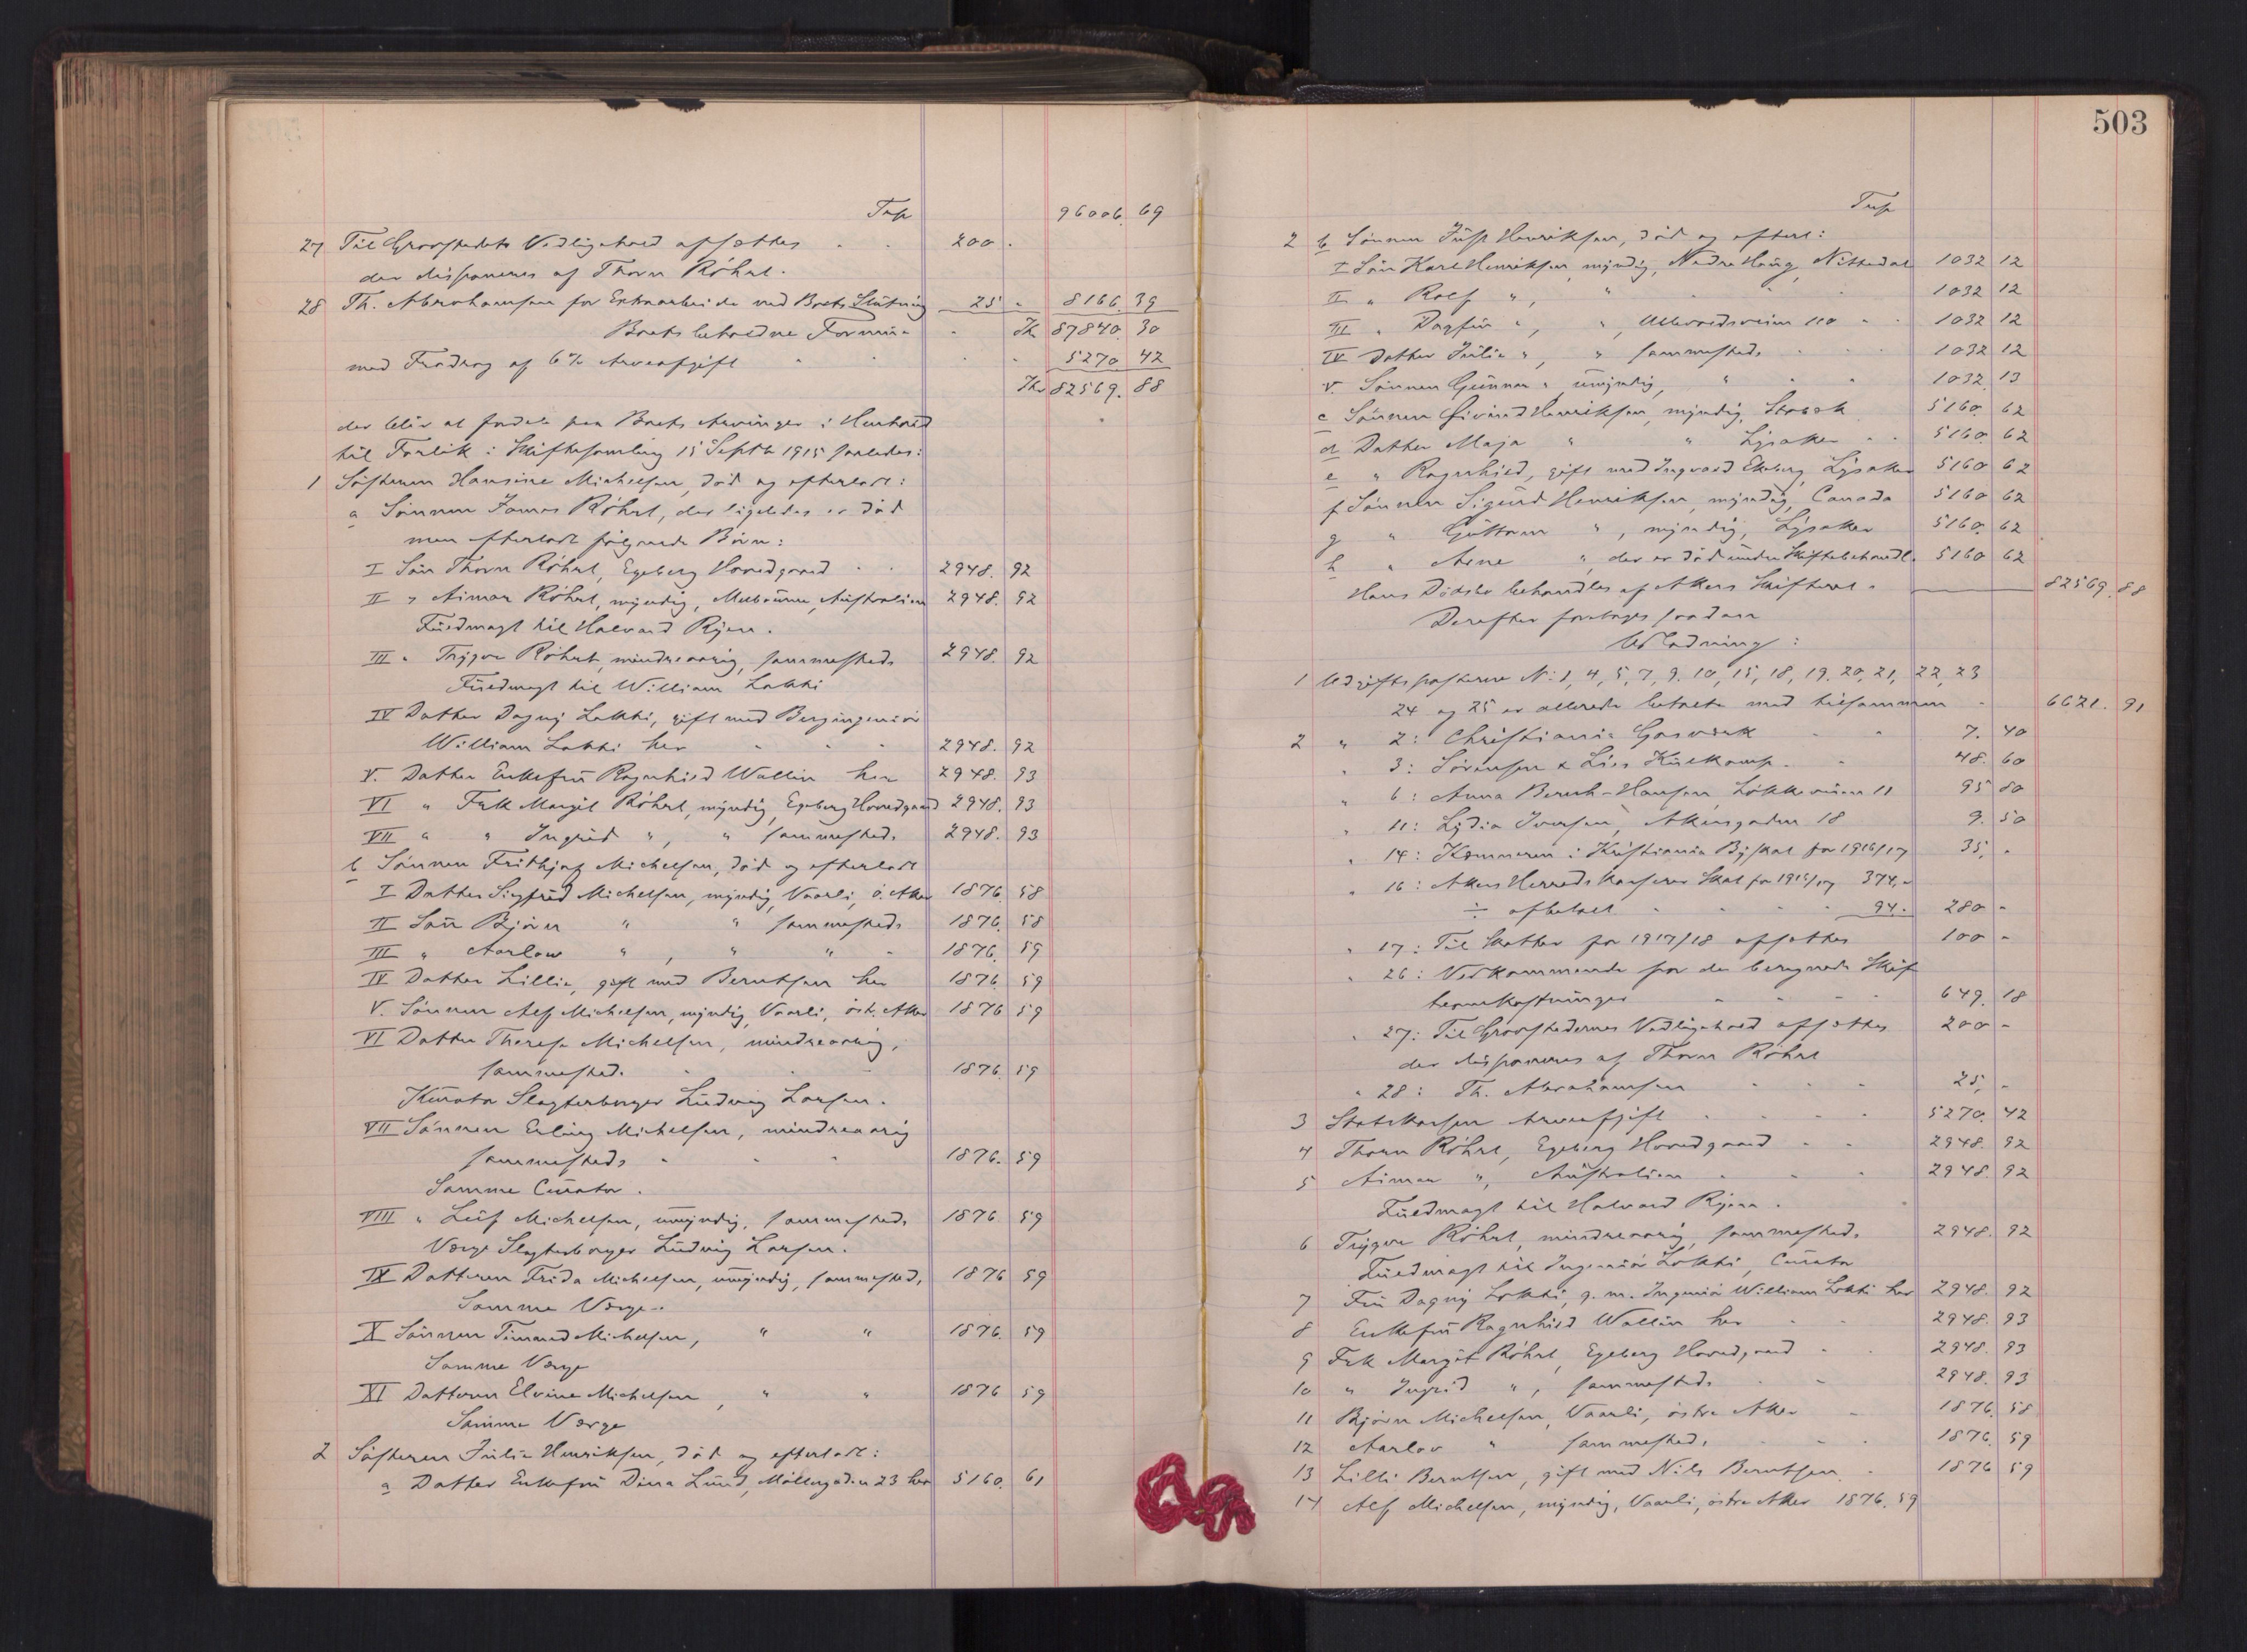 Trsp 96006. 69
27 Til Gravstedets Vedligehold afsættes 200 -
der disponeres af Thorv Röhrt.
28 Th. Abrahamsen for Extraarbeide ved Boets Slutning 25 - 8166. 39
Boets beholdne Formue Kr 87840. 30
med Fradrag af 6 % Arveafgift 5270 42
Kr 82569. 88
der blir at fordele paa Boets Arvinger i Henhold
til Forlik i Skiftesamling 15 Septb 1915 saaledes:
1 Søsteren Hansine Michelsen, død og efterladt:
a Sønnen Röhrt, der ligeledes er død
men efterladt følgende Børn:
I Søn Thorv Röhrt, Egeberg Hovedgaard 2948. 92
II " Aimar Röhrt, myndig, Melbourne, Australien 2948. 92
Fuldmagt til Halvard Ryen.
III " Trygve Röhrt, mindreaarig, sammesteds 2948. 92
Fuldmagt til William Lakki
IV Datter Dagny Lakki, gift med Bergingeniør
William Lakki her 2948. 92
V. Datter Enkefru Ragnhild Wallin her 2948. 93
VI " Frk Margit Röhrt, myndig, Egeberg Hovedgaard 2948. 93
VII " " Ingrid ", " sammesteds 2948. 93
b Sønnen Frithjof Michelsen, død og efterladt
I Datter Sigfrid Michelsen, myndig, Vaarli, ö. Aker 1876. 58
II Søn Bjørn " " sammesteds 1876. 58
III " Aarlow " , " " 1876. 59
IV Datter Lillie, gift med Berntsen her 1876. 59
V. Sønnen Alf Michelsen, myndig, Vaarli, östr. Aker 1876 59
VI Datter Therese Michelsen, mindreaarig,
sammesteds 1876. 59
Kurator Slagterborger Ludvig Larsen.
VII Sønnen Erling Michelsen, mindreaarig
sammesteds 1876. 59
Samme Curator.
VIII " Leif Michelsen, umyndig, sammesteds 1876. 59
Verge Slagterborger Ludvig Larsen.
IX Datteren Frida Michelsen, umyndig, sammested, 1876 59
Samme Verge.
X Sønnen Michelsen, " " 1876. 59
Samme Verge
XI Datteren Elvine Michelsen, " " 1876 59
Samme Verge
2 Søsteren Julie Henriksen, død og efterladt:
a Datter Enkefru Dina Lund, Möllergaden 23 her 5160. 61
503
Trsp
2 b Sønnen Henriksen, död og efterl:
I Søn Karl Henriksen, myndig, Nedre Haug, Nittedal 1032 12
II " Rolf ", " 1032 12
III " Dagfin ", ", Ullevoldsveien 110 1032 12
IV Datter Julie ", " sammesteds 1032 12
V. Sønnen Gunnar ", umyndig, " 1032. 13
c Sønnen Eivind Henriksen, myndig, Stabæk 5160. 62
d Datter Maja " " Lysaker 5160. 62
e " Ragnhild, gift med Ingvard Ekeberg, Lysaker 5160 62
f Sønnen Sigurd Henriksen, myndig, Canada 5160 62
g " Guttorm ", myndig, Lysaker 5160. 62
h " Arne ", der er död under Skiftebehandl. 5160 62
Hans Dødsbo behandles af Akers Skifteret. 82569. 88
Derefter foretages saadan
Udlodning:
1 Udgiftsposterne N: 1, 4, 5, 7, 9. 10, 15, 18, 19. 20, 21, 22, 23
24 og 25 er allerede betalte med tilsammen 6621. 91
2 " 2: Christiania Gasværk 7. 40
" 3: Sörensen & Lies Kulkomp. 48. 60
" 6: Anna Hansen, Løkkeveien 11 95 80
" 11: Lydia Iversen, Akersgaden 18 9. 50
" 14: Kemneren i Kristiania Byskat for 1916/17 35, -
" 16: Akers Herredskasserer Skat for 1916/17 374, -
÷ afbetalt 94. 280 -
" 17: Til Skatter for 1917/18 afsættes 100 -
" 26: Vedkommende for de beregnede Skif
teomkostninger 649. 18
" 27: Til Gravstedernes Vedligehold afsættes 200 -
der disponeres af Thorv Röhrt
" 28: Th. Abrahamsen 25, -
3 Statskassen Arveafgift 5270. 42
4 Thorv Röhrt, Egeberg Hovedgaard 2948. 92
5 Aimar ", Australien 2948. 92
Fuldmagt til Halvard Ryen.
6 Trygve Röhrt, mindreaarig, sammesteds 2948. 92
Fuldmagt til Ingeniör Lakki, Curator
7 Fru Dagny Lakki, g. m. Ingeniør William Lakki her 2948. 92
8 Enkefru Ragnhild Wallin her 2948. 93
9 Frk Margit Röhrt, Egeberg Hovedgaard 2948. 93
10 " Ingrid ", sammesteds 2948. 93
11 Bjørn Michelsen, Vaarli, östre Aker 1876. 58
12 Aarlov " sammesteds 1876. 59
13 Lilli Berntsen, gift med Nils Berntsen 1876 59
14 Alf Michelsen, myndig, Vaarli, östre Aker 1876. 59